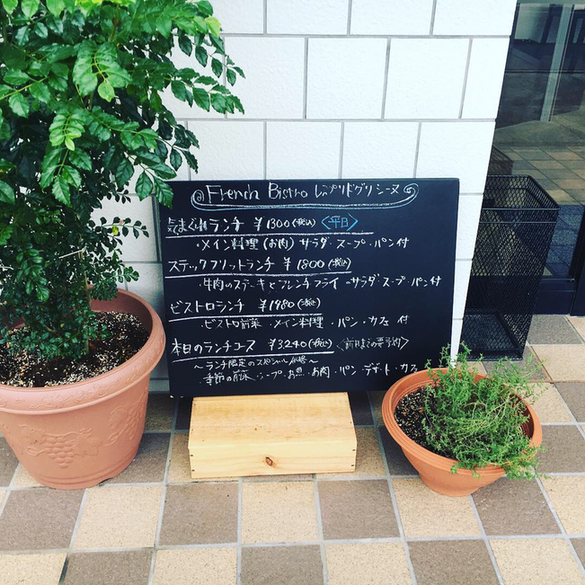 French Bistro レスプリドグリシーヌ
気まぐれランチ ¥1300(税込) <平日>
・メイン料理(お肉) サラダ・スープ・パン付
ステックフリットランチ ¥1800(税込)
・牛肉のステーキとフレンチフライ・サラダ・スープ・パン付
ビストロランチ ¥1980(税込)
・ビストロ前菜・メイン料理・パン・カフェ付
本日のランチコース ¥3240(税込) <前日までの要予約>
〜ランチ限定のスペシャル価格〜
季節の前菜・スープ・お魚・お肉・パン・デザート・カフェ